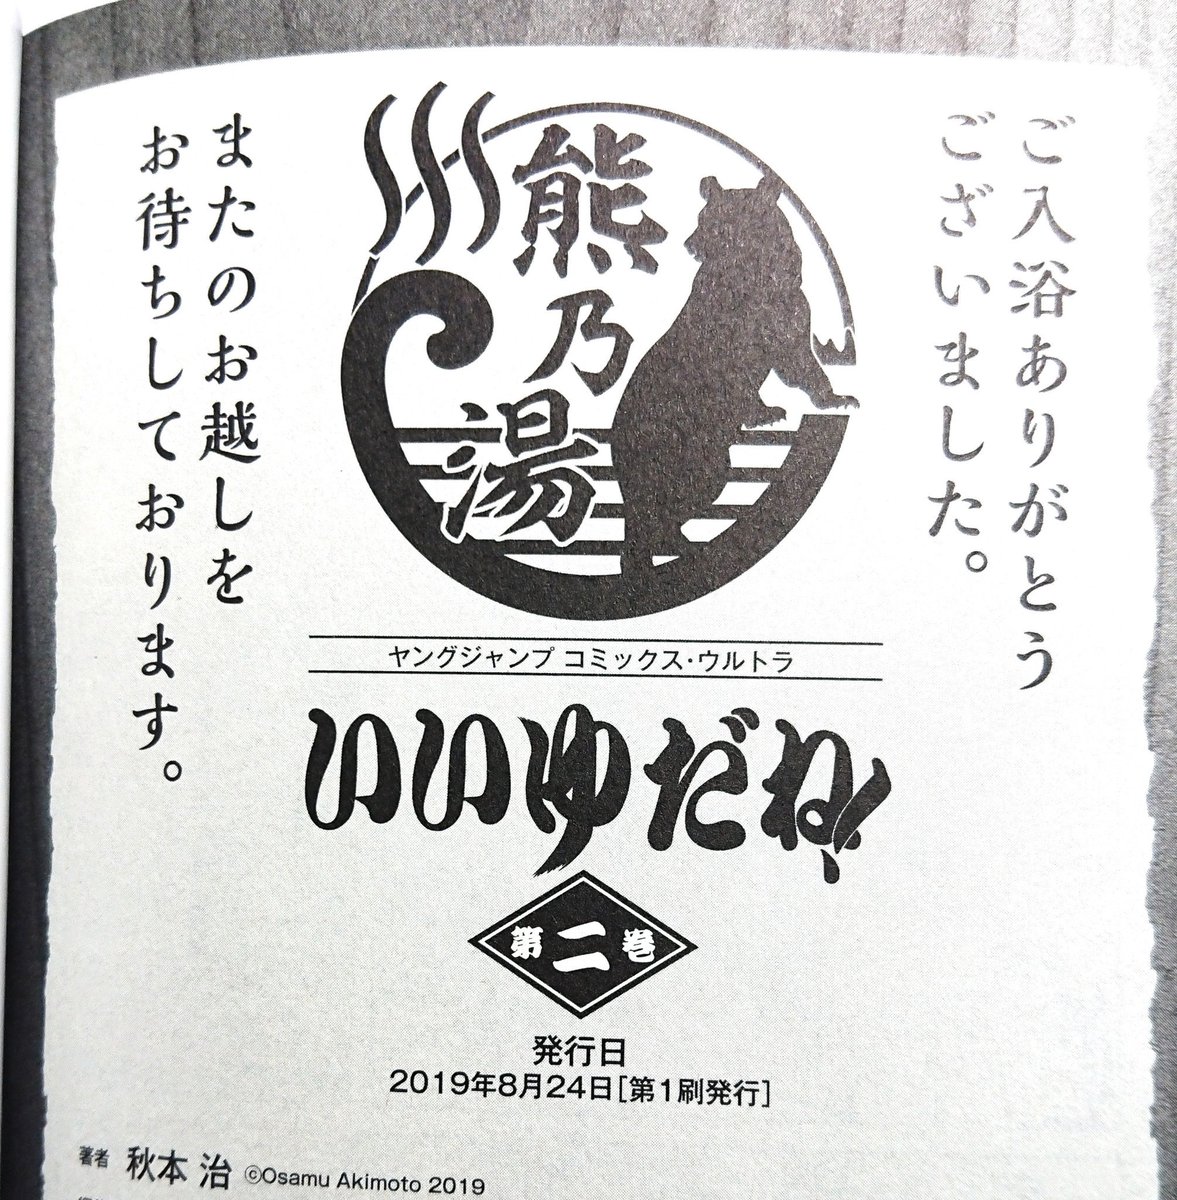 ご入浴ありがとう
ございました。
熊乃湯
またのお越しを
お待ちしております。
ヤングジャンプ コミックス・ウルトラ
いいゆだね!
第二巻
発行日
2019年8月24日[第1刷発行]
著者 秋本 治 ©Osamu Akimoto 2019